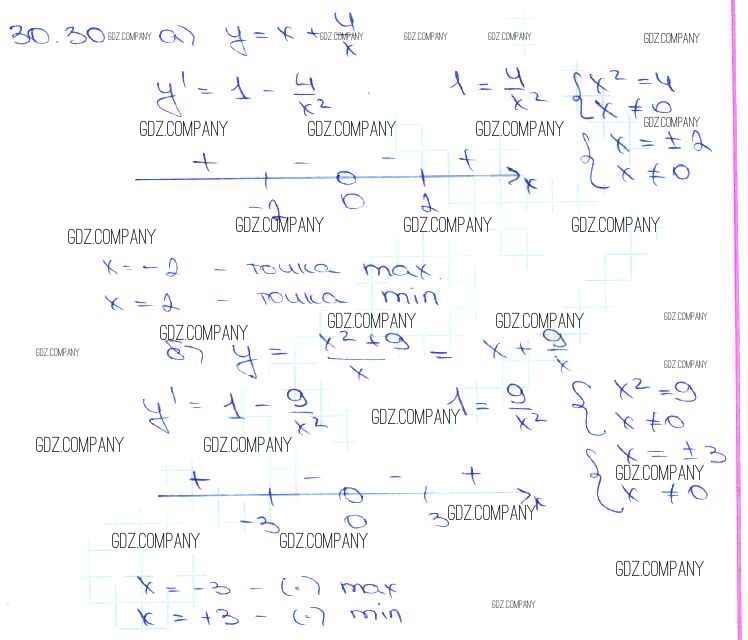 30.30 GDZ.COMPANY а) y = x + 4/x GDZ.COMPANY GDZ.COMPANY GDZ.COMPANY GDZ.COMPANY
y' = 1 - 4/x² 1 = 4/x² { x² = 4
x ≠ 0
GDZ.COMPANY GDZ.COMPANY GDZ.COMPANY GDZ.COMPANY
{ x = ±2
x ≠ 0
+ - - + x
-2 0 2
GDZ.COMPANY GDZ.COMPANY GDZ.COMPANY GDZ.COMPANY
x = -2 - точка max.
x = 2 - точка min
GDZ.COMPANY GDZ.COMPANY GDZ.COMPANY GDZ.COMPANY
GDZ.COMPANY б) y = (x² + 9)/x = x + 9/x GDZ.COMPANY
y' = 1 - 9/x² GDZ.COMPANY 1 = 9/x² { x² = 9
x ≠ 0
GDZ.COMPANY GDZ.COMPANY
{ x = ±3
GDZ.COMPANY
x ≠ 0
+ - - + x
-3 0 3 GDZ.COMPANY
GDZ.COMPANY GDZ.COMPANY GDZ.COMPANY
x = -3 - (·) max
x = +3 - (·) min GDZ.COMPANY